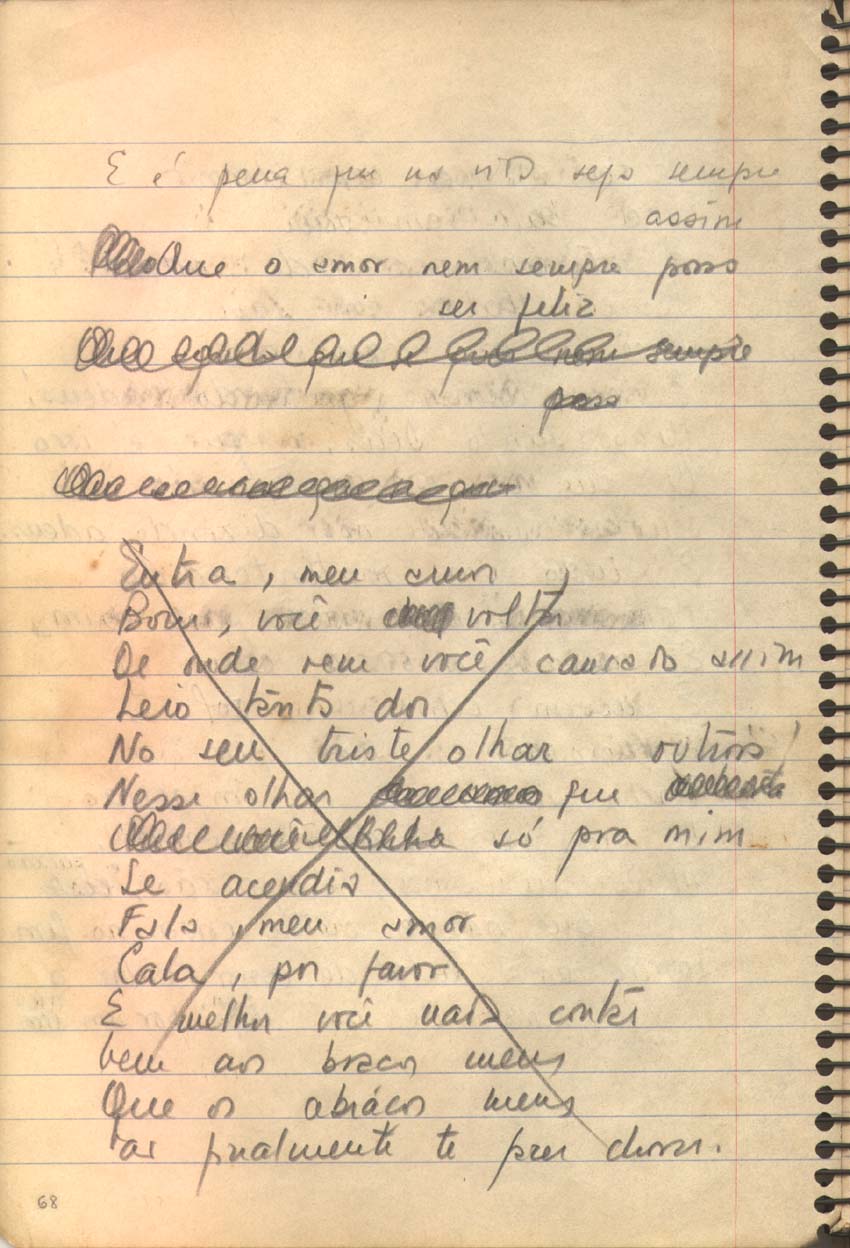 E é pena que
não seja sempre
assim
Que o amor nem sempre possa
ser feliz
nem sempre
possa
Entra, meu amor
Bom, você voltar
De onde vem você cansado assim
Leio tanta dor
No seu triste olhar
Nesse olhar que outrora
só pra mim
Se acendia
Fala, meu amor
Cala, por favor
E melhor você nada contar
Vem aos braços meus
Que os abraços meus
finalmente te
68